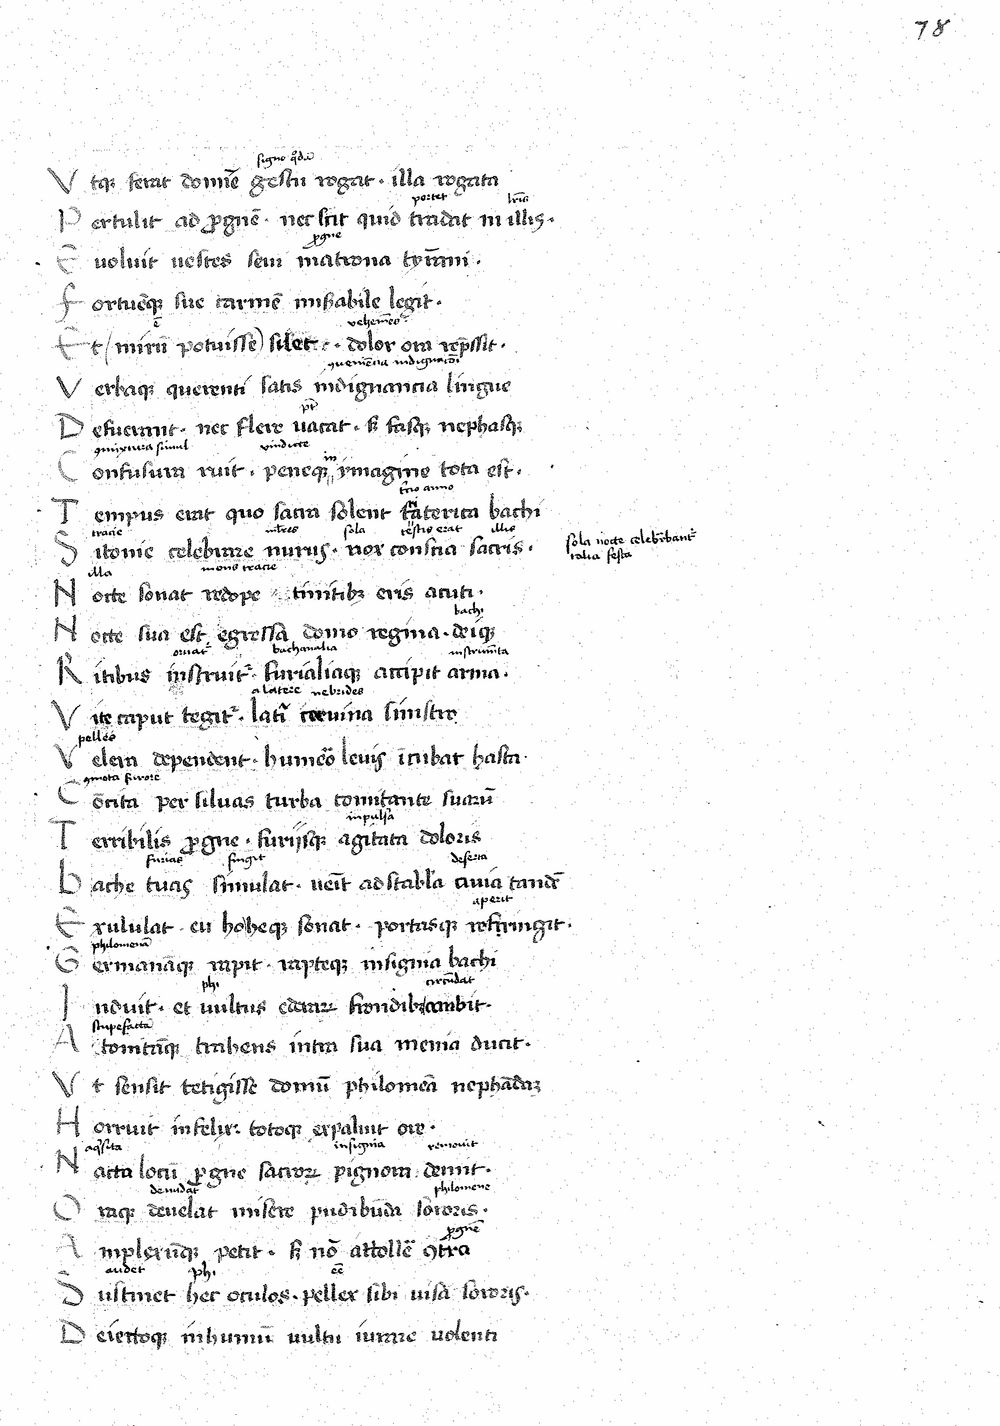 78
signo qdā
Vtqꝫ ferat domīe gestu rogat · illa rogata
portet lr̄is
Pertulit ad ꝓgnē · nec scit quid tradat in illis ·
ꝓgne
Evoluit vestes sevi matrona tyrāni ·
Fortuēqꝫ sue carmē misabile legit ·
ē vehemēs
Et (mirū potuisse) silet · dolor ora rep̄ssit ·
Verbaqꝫ querenti satis indignancia lingue
Defuerunt · nec flere vacat · sꝫ fasqꝫ nephasqꝫ
ꝯmixtura simul vindicte
Confusura ruit · peneqꝫ ymagine tota est ·
in
t̄cio anno
Tempus erat quo sacra solent t̄aterica bachi
tracie mr̄es sola testis erat illis
Sitonie celebrare nurus · nox conscia sacris ·
sola nocte celebrabant᷑
talia festa
illa mons tracie
Nocte sonat redope tinitibꝫ eris acuti ·
bachi
Nocte sua est egressa domo regina · deiqꝫ
ornat᷑ bachanalia instrum̄ta
Ritibus instruit᷑ · furialiaqꝫ accipit arma ·
a latere nebrides
Vite caput tegit᷑ · lat̄i cervina sinistro
pelles
Velera dependent · humēo levis īcubat hasta ·
ꝯmota furore
Cōcita per silvas turba comitante suarū
impulsa
Terribilis ꝓgne · furiisqꝫ agitata doloris
furias fingit deserta
Bache tuas simulat · venit ad stabl̄a avia tandē
aperit
Exululat · eu hoheqꝫ sonat · portasqꝫ refringit ·
philomenā
Germanāqꝫ rapit · rapteqꝫ insignia bachi
phi circūdat
Induit · et vultus ederaꝝ frondibꝫ ambit ·
stupefactā
Atonitāqꝫ trahens intra sua menia ducit ·
Vt sensit tetigisse domū philomēa nephādaꝫ
Horruit infelix · totoqꝫ expaluit ore ·
aq̄sita insignia removit
Nacta locū ꝓgne sacroꝝ pignora demit ·
denudat philomene
Oraqꝫ develat misere pudibūda sororis ·
ꝓgnē
Amplexūqꝫ petit · sꝫ nō attollē ꝯtra
audet phi ēē
Sustinet hec oculos · pellex sibi visa sororis ·
Deiectoqꝫ in humū vultu iurare volenti